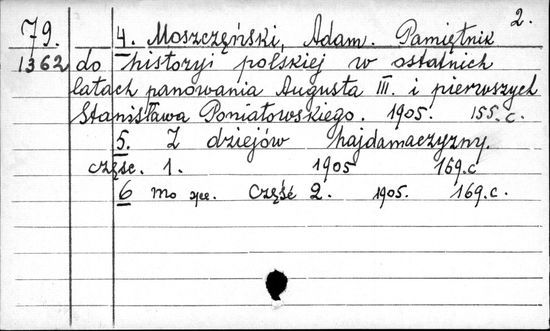 2.
79. 4. Moszczęński, Adam. Pamiętnik
1362 do historyi polskiej w ostatnich
latach panowania Augusta III. i pierwszych
Stanisława Poniatowskiego. 1905. 155.c.
5. Z dziejów hajdamaczyzny.
częśc. 1. 1905 159.c
6 то же. Część 2. 1905. 169.c.